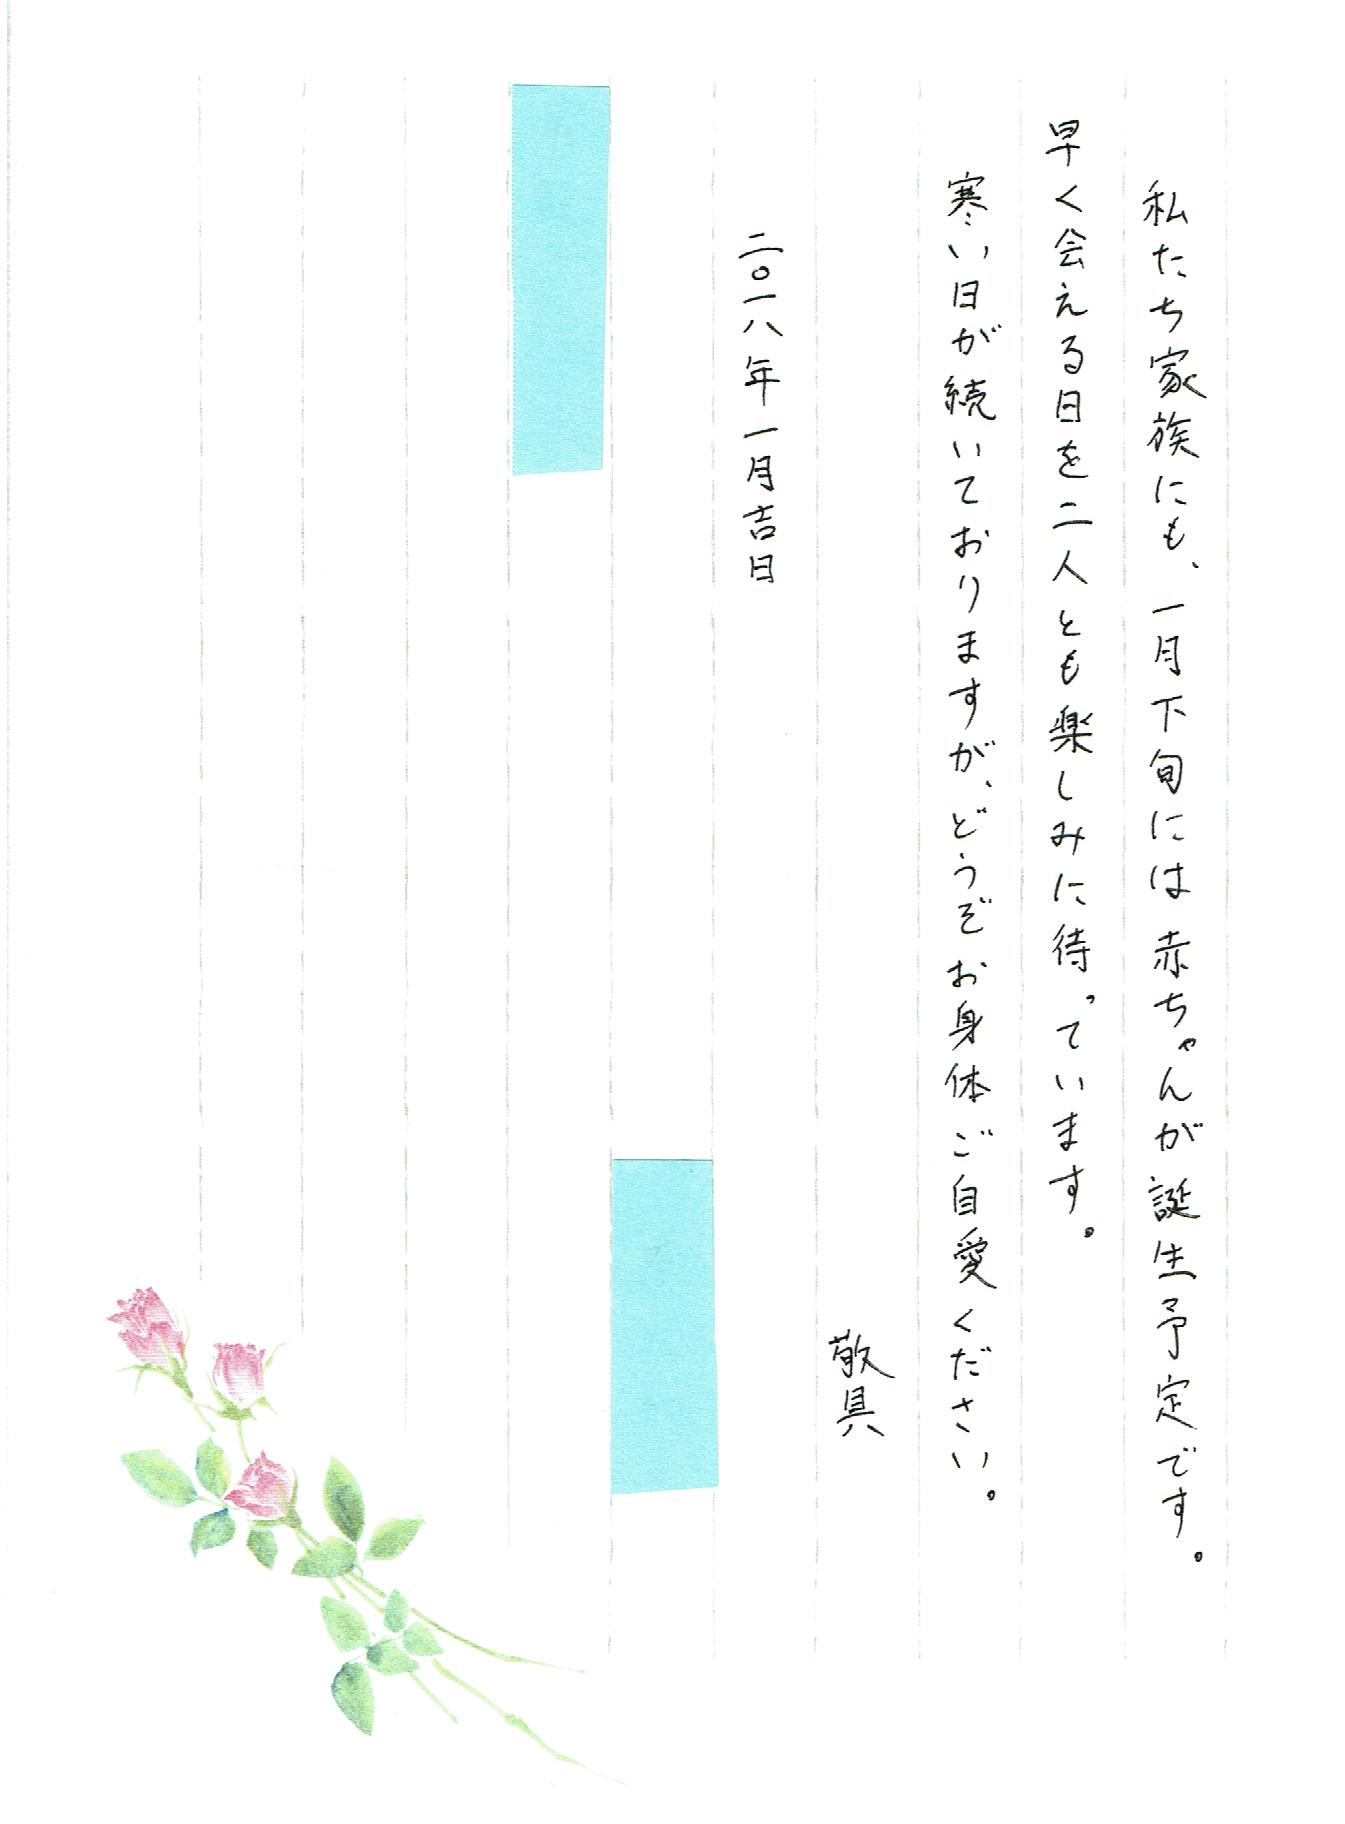 私たち家族にも、一月下旬には赤ちゃんが誕生予定です。
早く会える日を二人とも楽しみに待っています。
寒い日が続いておりますが、どうぞお身体ご自愛ください。
敬具
二〇一八年一月吉日